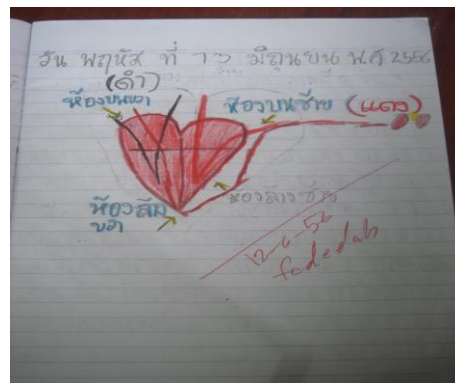 วัน พฤหัส ที่ 13 มิถุนยน พ.ศ 2556
(ดำ)
ห้องบนขวา
ห้องบนซ้าย (แดง)
ห้องล่างซ้าย
ห้องล่าง
ขวา
12-6-56